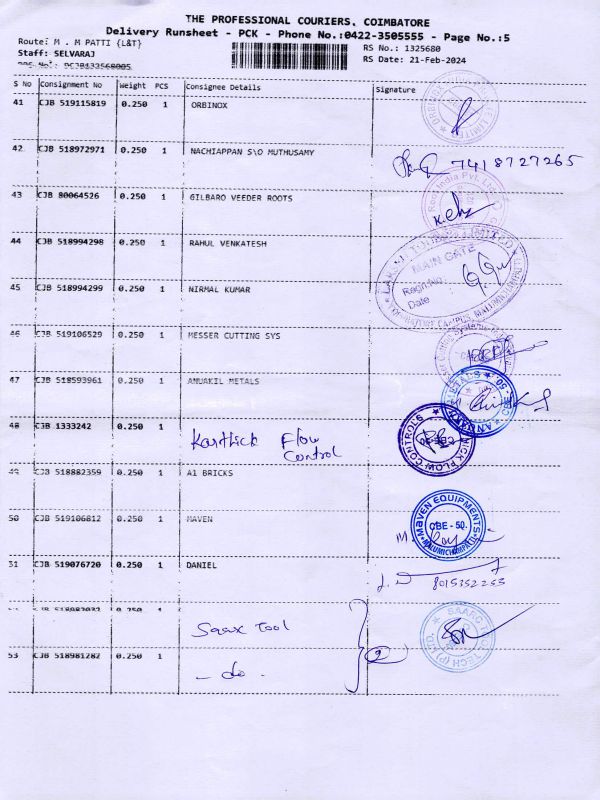 THE PROFESSIONAL COURIERS, COIMBATORE
Delivery Runsheet - PCK - Phone No.:0422-3505555 - Page No.:5
Route: M . M PATTI {L&T}
RS No.: 1325680
Staff: SELVARAJ
RS Date: 21-Feb-2024
S No Consignment No Weight PCS Consignee Details Signature
41 CJB 519115819 0.250 1 ORBINOX
42 CJB 518972971 0.250 1 NACHIAPPAN S\O MUTHUSAMY 7418727265
43 CJB 80064526 0.250 1 GILBARO VEEDER ROOTS
44 CJB 518994298 0.250 1 RAHUL VENKATESH
MAIN GATE
Regn No
Date
45 CJB 518994299 0.250 1 NIRMAL KUMAR
46 CJB 519106529 0.250 1 MESSER CUTTING SYS
47 CJB 518593961 0.250 1 ANUAKIL METALS
48 CJB 1333242 0.250 1 Karthick Flow Control
49 CJB 518882359 0.250 1 A1 BRICKS
50 CJB 519106812 0.250 1 MAVEN
MAVEN EQUIPMENTS
CBE - 50.
51 CJB 519076720 0.250 1 DANIEL
0.250 1 Saarc Tool
53 CJB 518981282 0.250 1 - do - 2
SAARC TOOL TECH (P) LTD